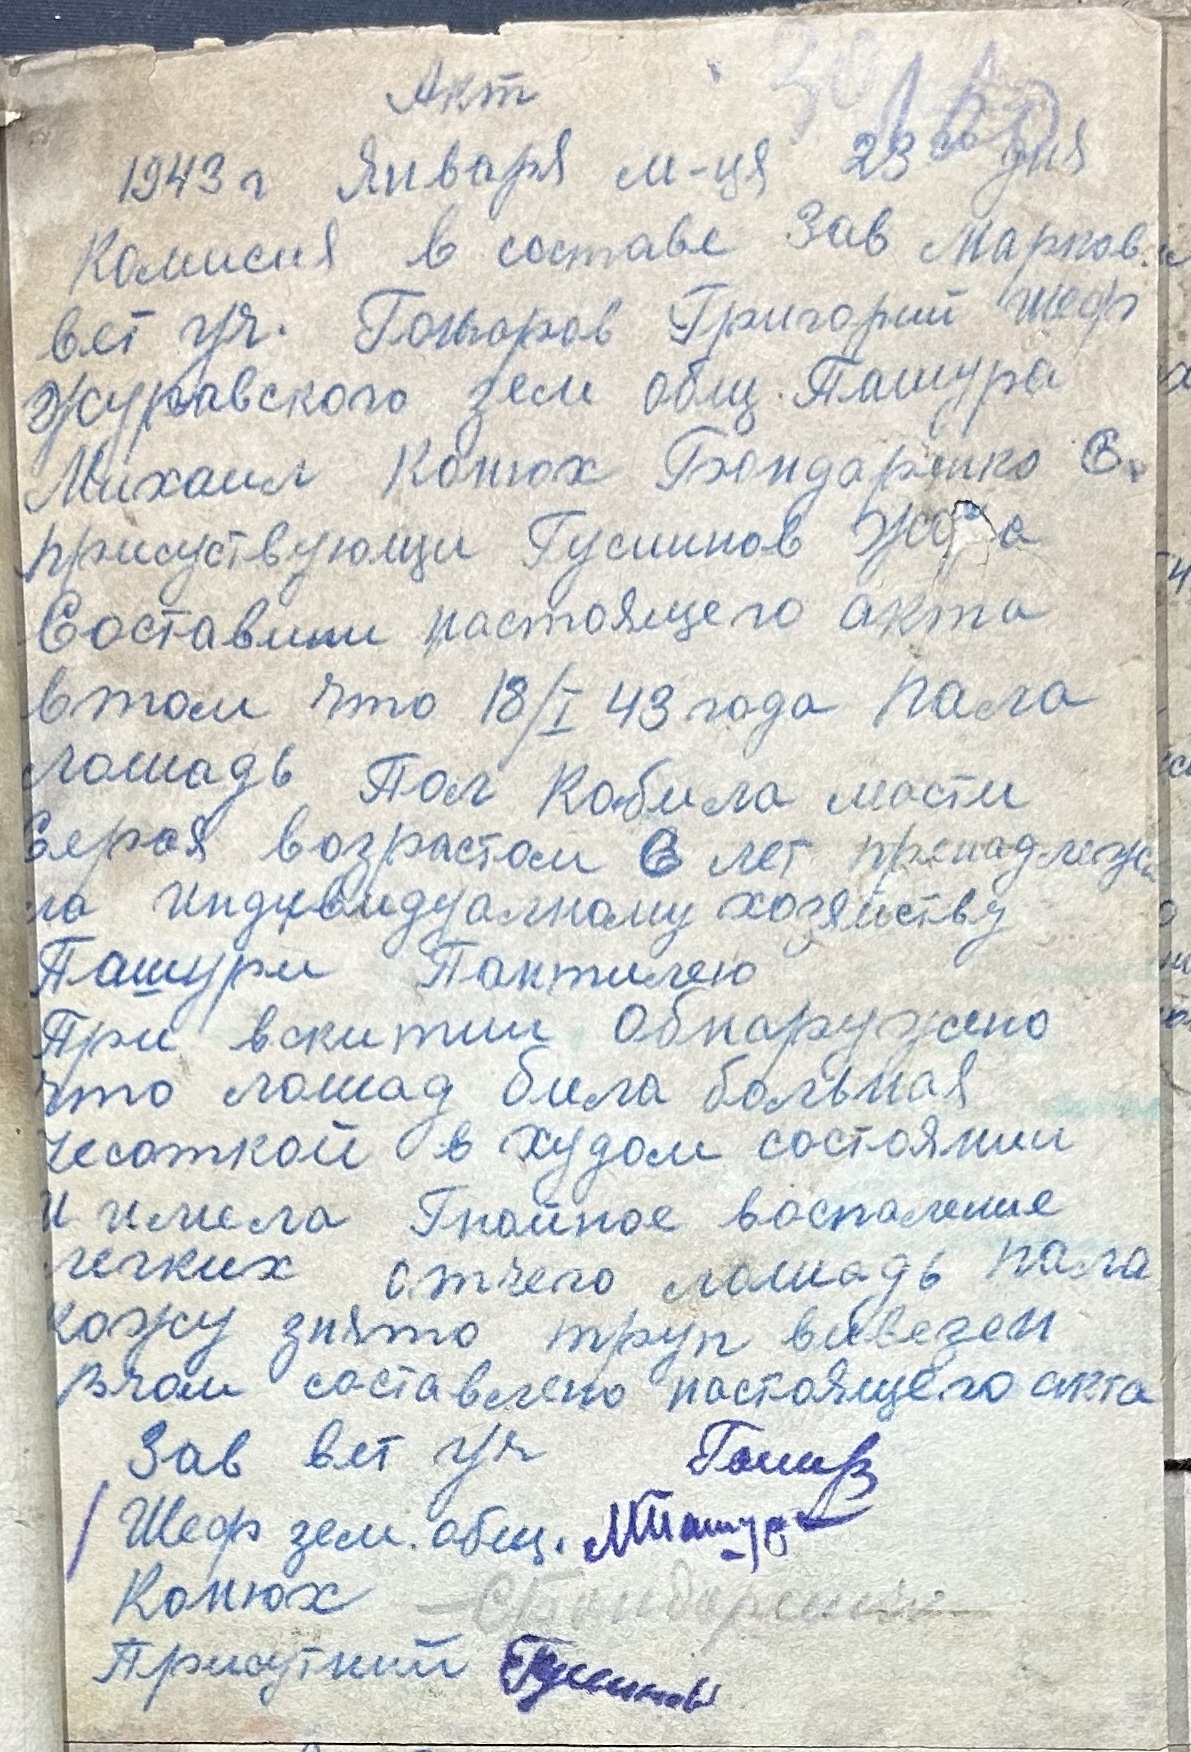 Акт
1943 г Января м-ця 23го дня
Комисия в составе Зав Марков.
вет уч. Гонтаров Григорий Шеф
Журавского зем общ. Пашура
Михаил Конюх Бондаренко С.
присуствующи Гусминов
Составили настоящего акта
втом что 18/I 43 года пала
лошадь Пол Кобила масти
Серая возрастом 6 лет принадлежа
ла индивидуалному хозяйству
Пашури Пантилею
При вскитии Обнаружено
что лошад била больная
чесоткой в худом состоянии
и имела Гнойное воспаление
легких отчего лошадь пала
кожу знято труп вивезен
Вчом составлено настоящего акта
Зав вет уч
Шеф зем. общ. МПашура
Конюх СБондаренко
Присутний Гусминов